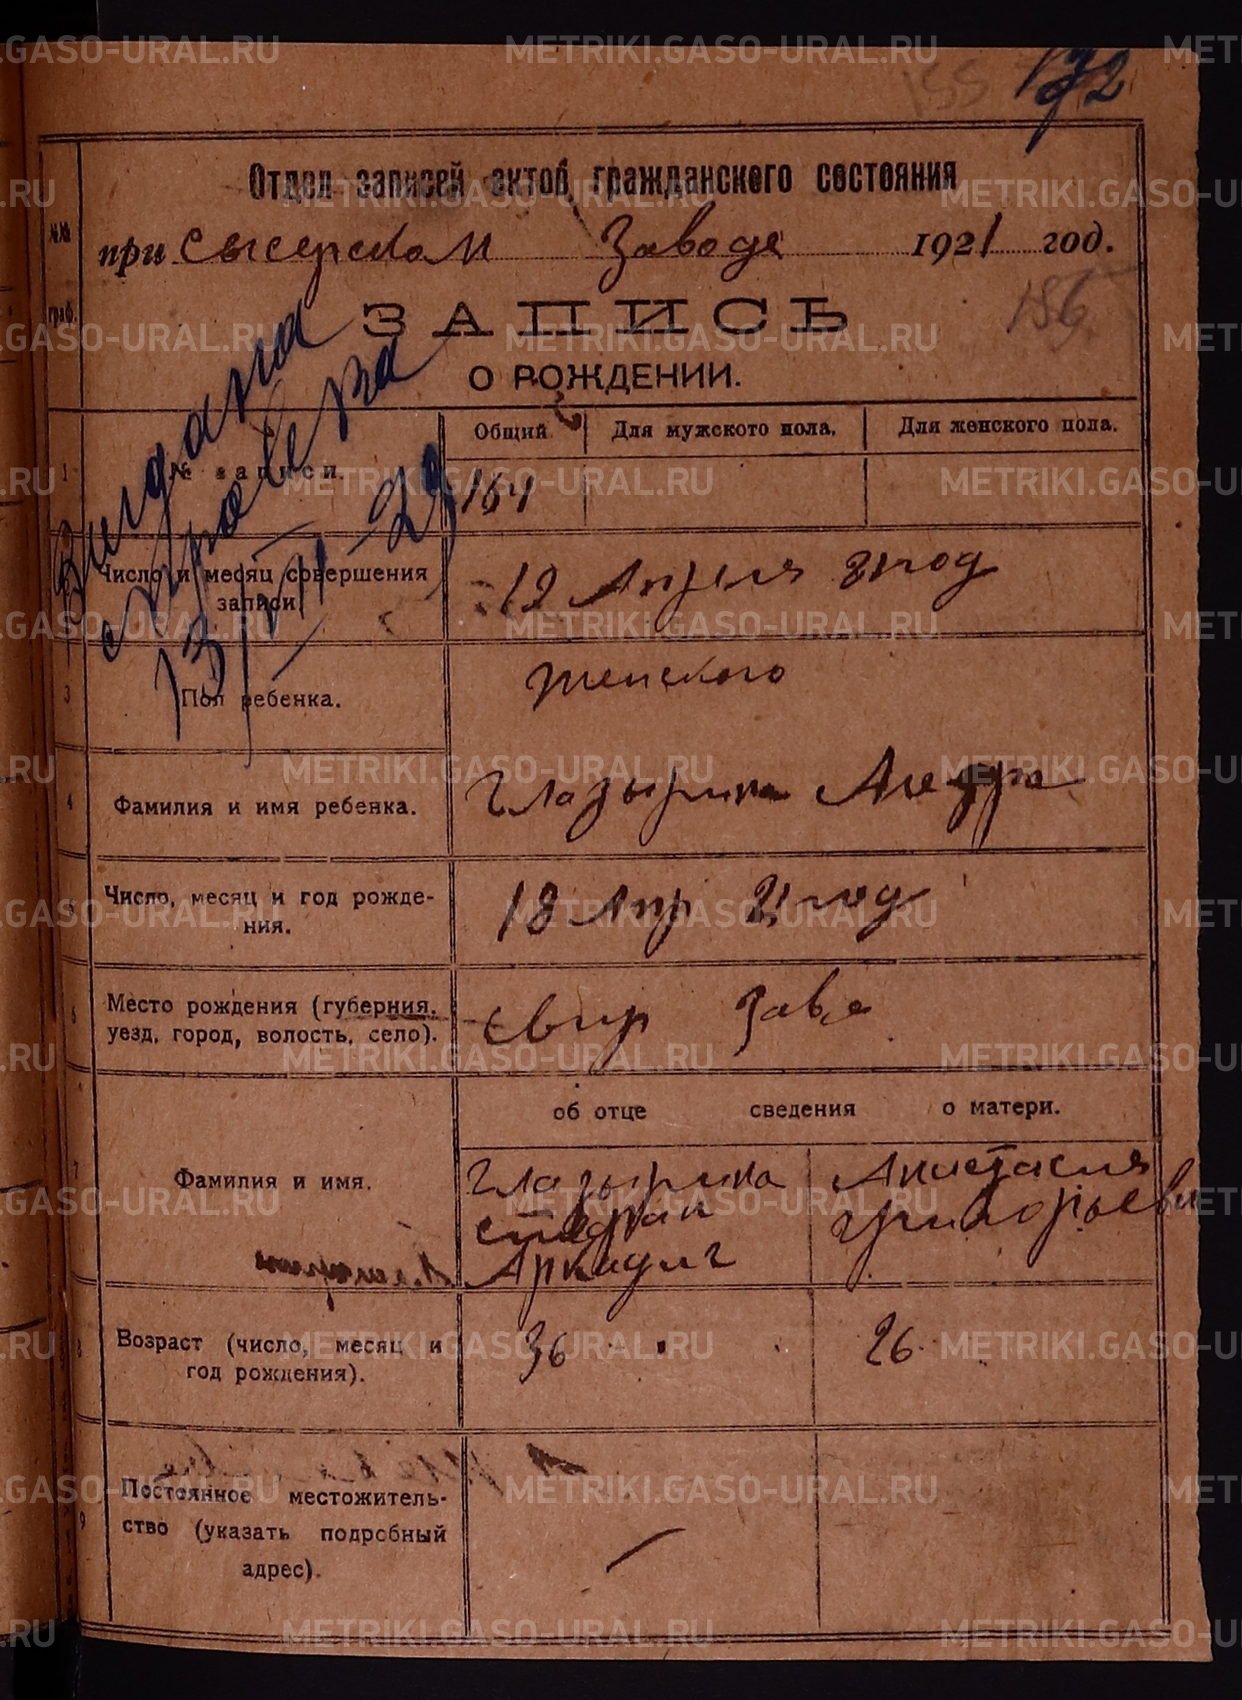 155 172
Отдел записей актов гражданского состояния
№№
граф.
при Сысерском Заводе 1921 год.
186
ЗАПИСЬ
О РОЖДЕНИИ.
Выдана
справка
Общий Для мужского пола. Для женского пола.
1 № записи. 164
Число и месяц совершения
записи. 19 Апреля 21 год
3 Пол ребенка. Женского
4 Фамилия и имя ребенка. Глазырина
5 Число, месяц и год рожде-
ния. 18 Апр 21 год
6 Место рождения (губерния,
уезд, город, волость, село). Зав
об отце сведения о матери.
7 Фамилия и имя. Глазырина Анастасия
Степан Григорьевн
Аркадиг
8 Возраст (число, месяц и
год рождения). 36 26
9 Постоянное местожитель-
ство (указать подробный
адрес). —
METRIKI.GASO-URAL.RU